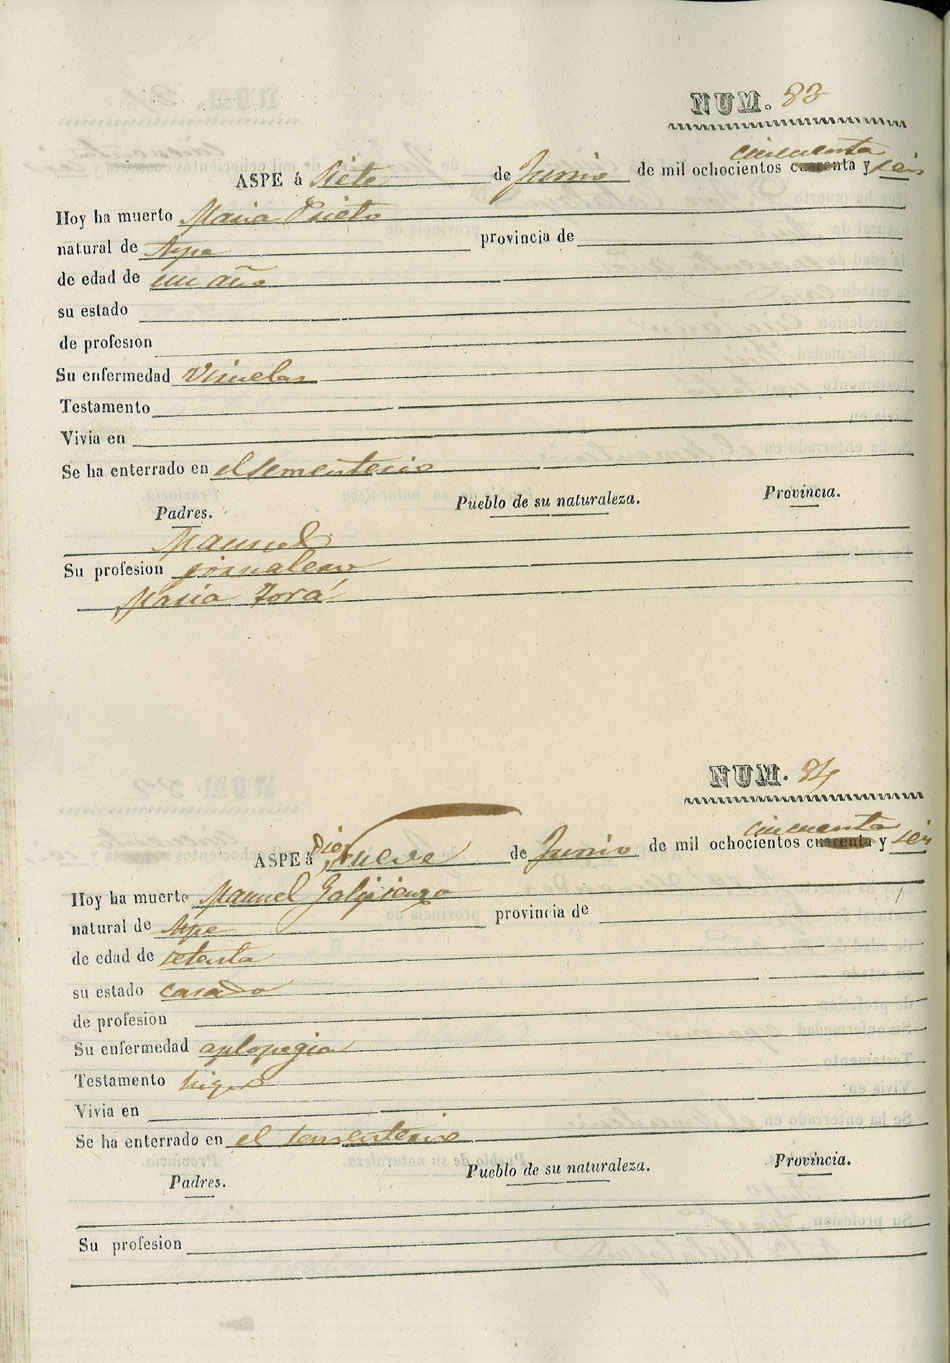 NUM. 83
cincuenta
ASPE á Siete de Junio de mil ochocientos cuarenta y seis
Hoy ha muerto Maria Prieto
natural de Aspe provincia de
de edad de un año
su estado
de profesion
Su enfermedad Viruelas
Testamento
Vivia en
Se ha enterrado en el sementerio
Padres. Pueblo de su naturaleza. Provincia.
Manuel
Su profesion jornalero
Maria Torá
NUM. 84
cincuenta
ASPE á Diez Nueve de Junio de mil ochocientos cuarenta y seis
Hoy ha muerto Manuel Galipienzo
natural de Aspe provincia de
de edad de setenta
su estado casado
de profesion
Su enfermedad aplopegia
Testamento hizo
Vivia en
Se ha enterrado en el sementerio
Padres. Pueblo de su naturaleza. Provincia.
Su profesion